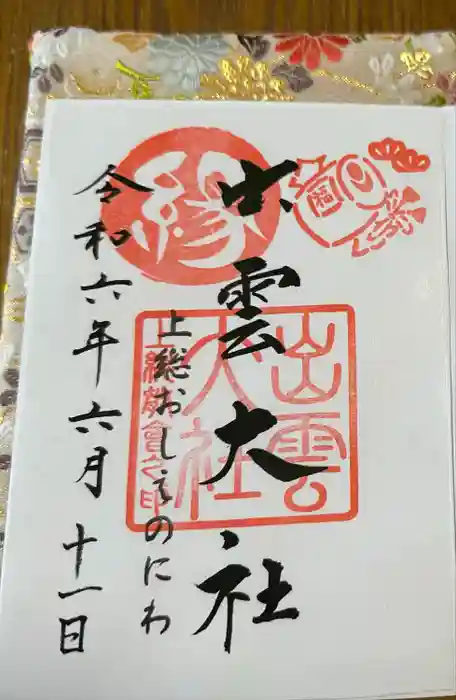 出雲大社
上総おしえのにわ
令和六年六月十一日
縁
出雲
大社
上總教會之印